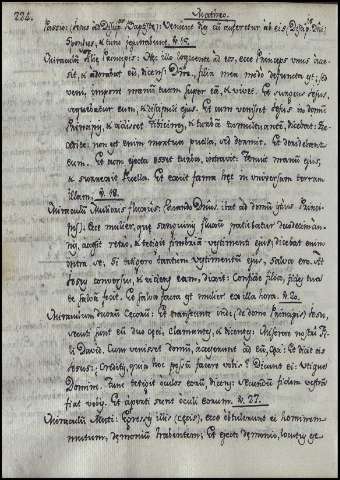 224. Matheo.
Passio: (ait ad Discip. Baptistæ): Venient dies cum auferetur ab eis
Sponsus, & tunc jejunabunt. v. 15.
Miraculum Filiæ Principis: Hæc illo loquente ad eos, ecce Princeps unus acce-
sit, & adorabat eum, dicens: Dñe, filia mea modo defuncta est; sed
veni, impone manum tuam super eam, & vivet. Et surgens Jesus,
sequebatur eum, & discipuli ejus. Et cum venisset Jesus in domum
Principis, & vidisset tibicines, & turbam tumultuantem, dicebat: Re-
cedite: non est enim mortua puella, sed dormit. Et deridebant
eum. Et cum ejecta esset turba, intravit: tenuit manum ejus,
& surrexit puella. Et exiit fama hæc in universam terram
illam. v. 18.
Miraculum Mulieris fluxus: (quando Dñus ibat ad domum Princi-
pis). Ecce mulier, quæ sanguinis fluxum patiebatur duodecim an-
nis, accessit retro, & tetigit fimbriam vestimenti ejus; dicebat enim
intra se, Si tetigero tantum vestimentum ejus, salva ero. At
Jesus conversus, & videns eam, dixit: Confide filia, fides tua
te salvam fecit. Et salva facta est mulier ex illa hora. v. 20.
Miraculum duorum Cæcorum: Et transeunte inde (de domo Principis) Jesu,
secuti sunt eum duo cæci, clamantes, & dicentes: Miserere nostri Fi-
li David. Cum venisset domum, accesserunt ad eum, cæci: Et dixit eis
Jesus: Creditis, quia hoc possum facere vobis? Dicunt ei: Utique
Domine. Tunc tetigit oculos eorum, dicens: Secundum fidem vestram
fiat vobis. Et aperti sunt oculi eorum. v. 27.
Miraculum Muti: Egressis illis (cæcis), ecce obtulerunt ei hominem
mutum, dæmonium habentem; Et ejecto dæmonio, locutus est